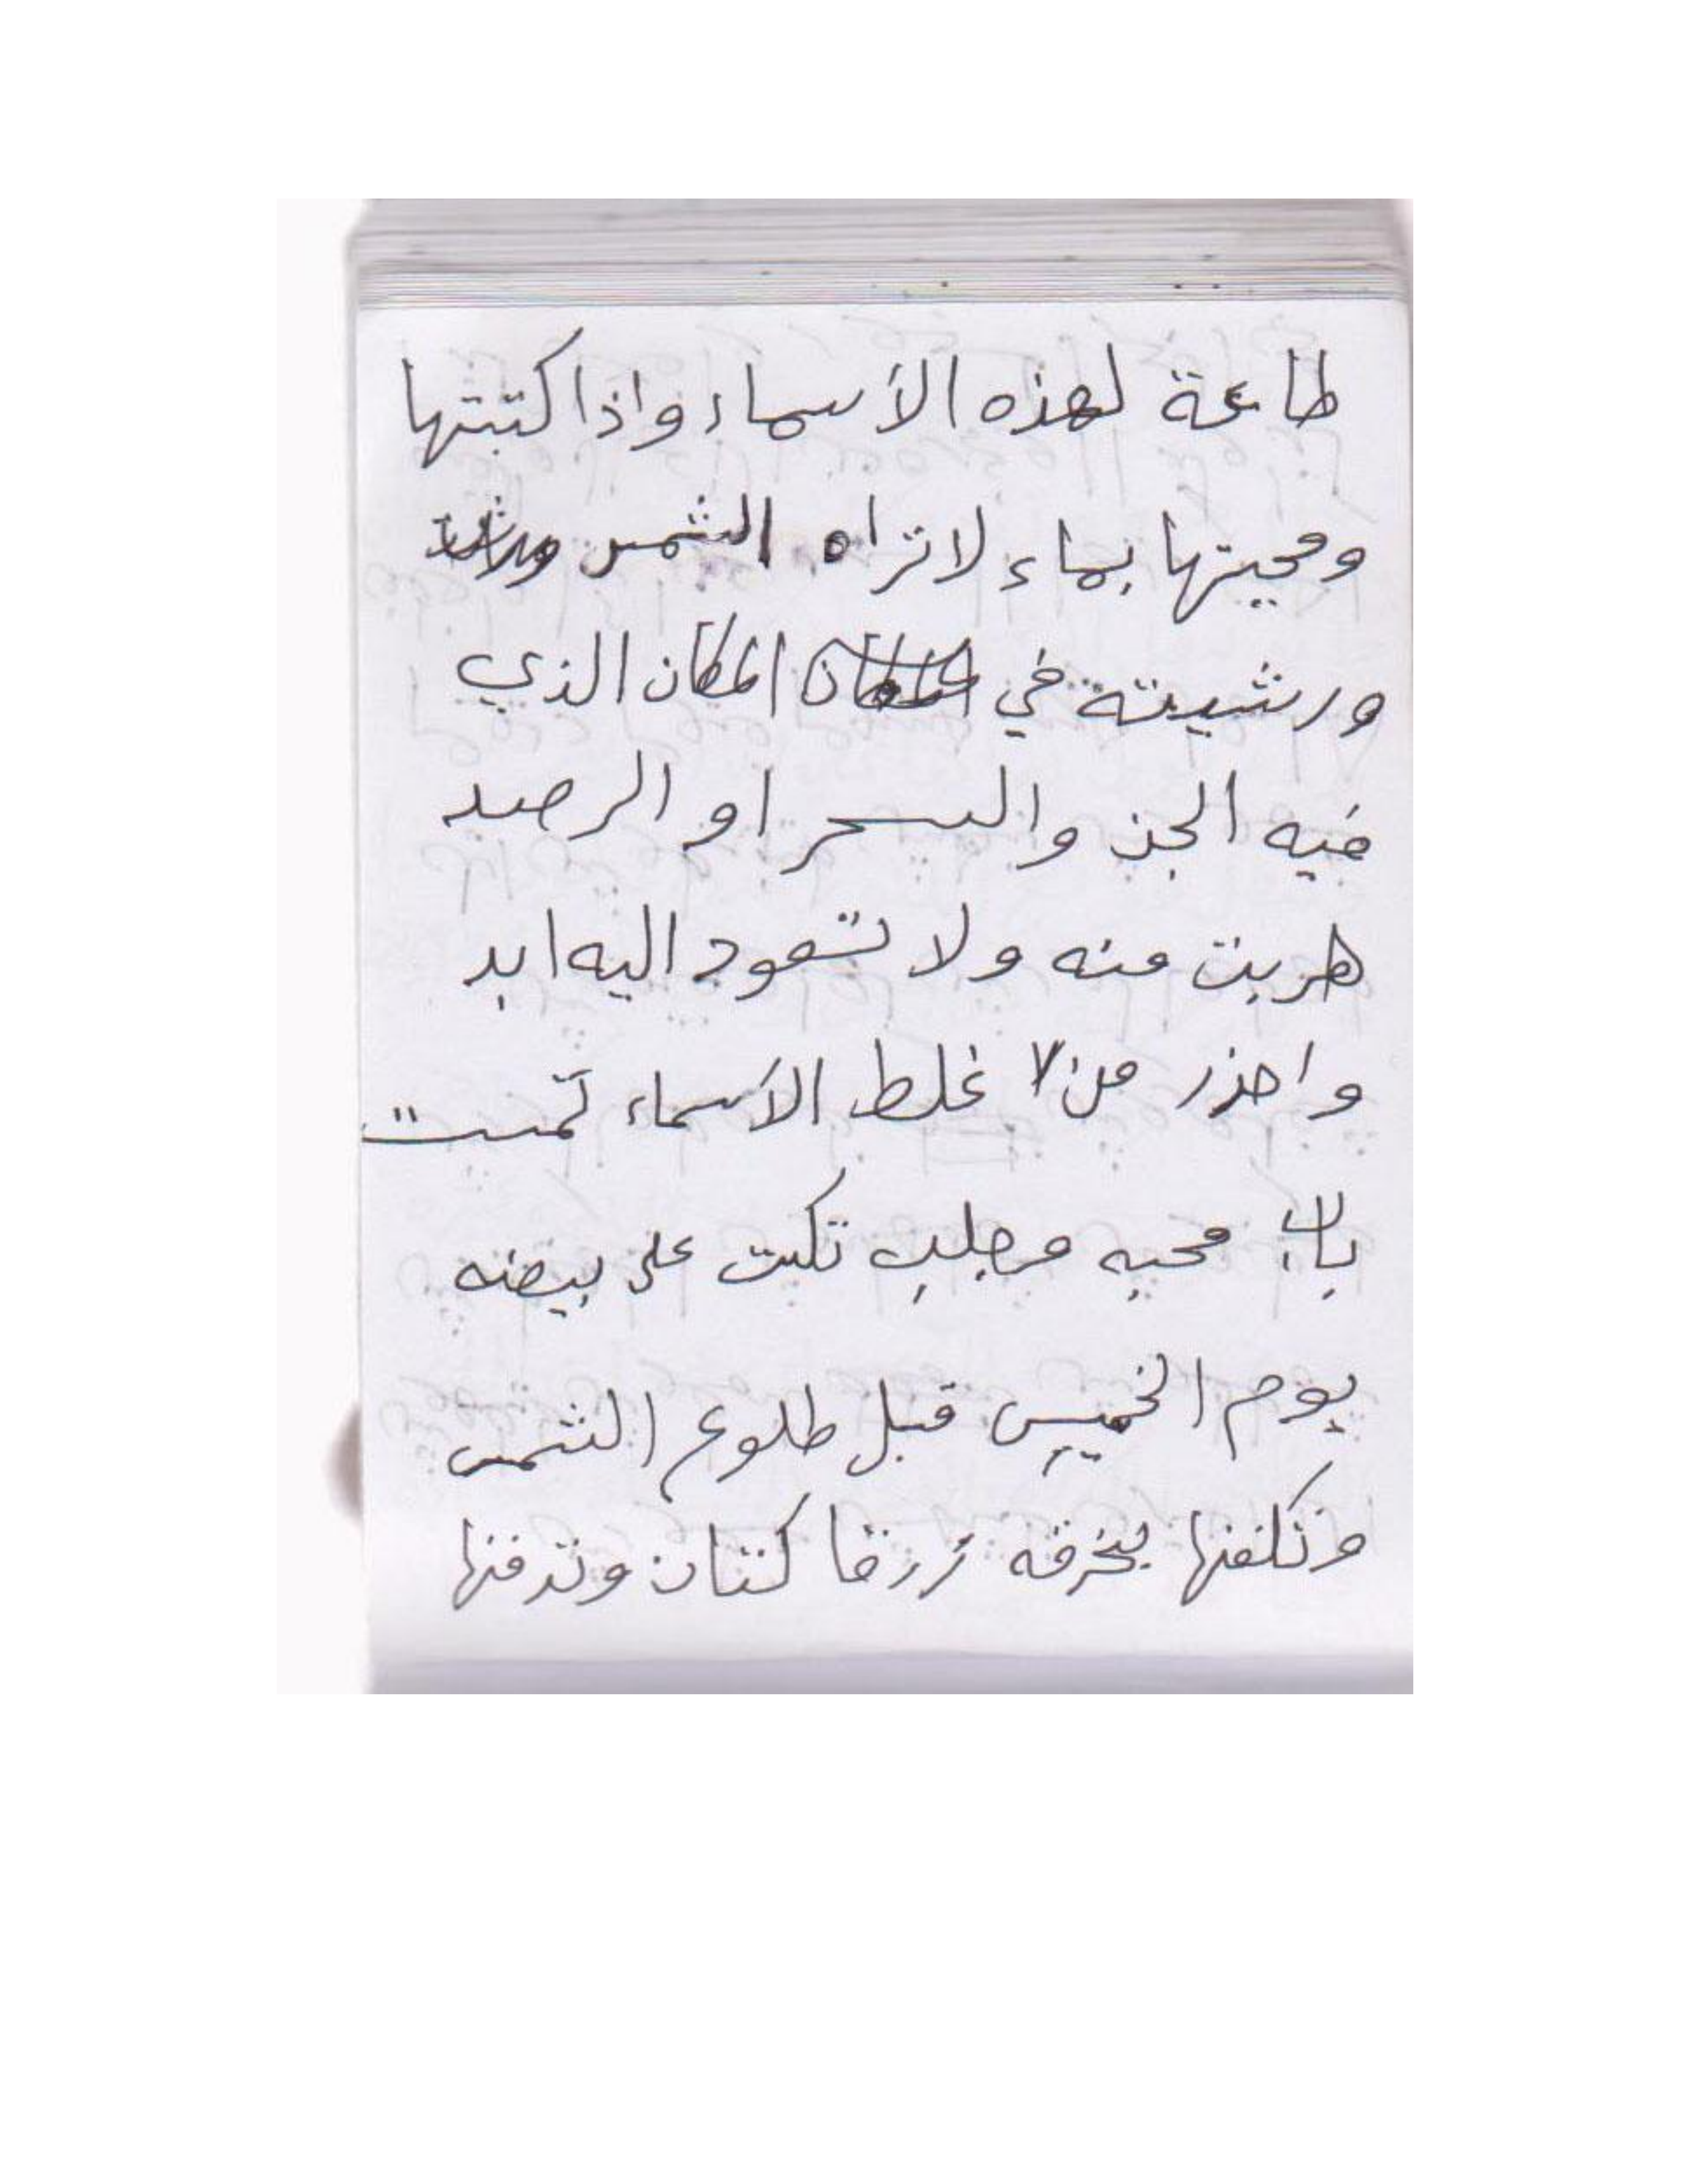 طاعة لهذه الأسماء واذا كتبتها
ومحيتها بماء لا تراه الشمس
ورشيته في المكان الذي
فيه الجن والسحر او الرصد
هربت منه ولا تعود اليه ابد
واحذر من لا غلط الأسماء تمت
باب محبه وجلب تكت على بيضه
يوم الخميس قبل طلوع الشمس
وتكلفنها بخرقه زرقا كتان وتدفنها